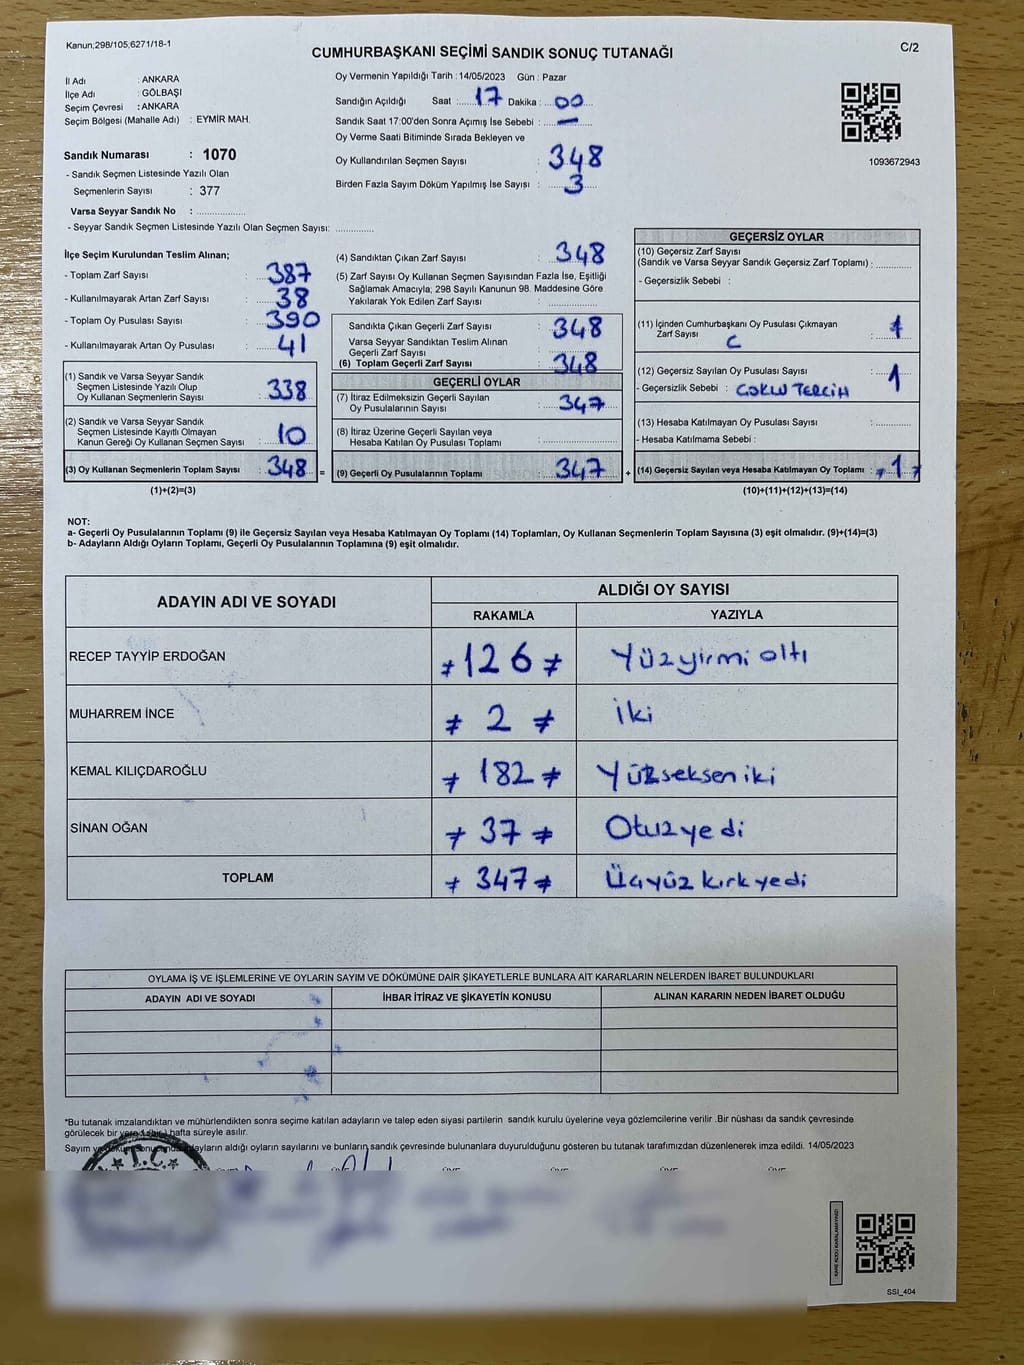 Kanun;298/105;6271/18-1
CUMHURBAŞKANI SEÇİMİ SANDIK SONUÇ TUTANAĞI
C/2
İl Adı : ANKARA
İlçe Adı : GÖLBAŞI
Seçim Çevresi : ANKARA
Seçim Bölgesi (Mahalle Adı) : EYMİR MAH.
Oy Vermenin Yapıldığı Tarih : 14/05/2023 Gün : Pazar
Sandığın Açıldığı Saat : 17 Dakika : 00
Sandık Saat 17:00'den Sonra Açımış İse Sebebi : —
Oy Verme Saati Bitiminde Sırada Bekleyen ve
Oy Kullandırılan Seçmen Sayısı : 348
Birden Fazla Sayım Döküm Yapılmış İse Sayısı : 3
1093672943
Sandık Numarası : 1070
- Sandık Seçmen Listesinde Yazılı Olan
Seçmenlerin Sayısı : 377
Varsa Seyyar Sandık No :
- Seyyar Sandık Seçmen Listesinde Yazılı Olan Seçmen Sayısı:
İlçe Seçim Kurulundan Teslim Alınan;
- Toplam Zarf Sayısı : 387
- Kullanılmayarak Artan Zarf Sayısı : 38
- Toplam Oy Pusulası Sayısı : 390
- Kullanılmayarak Artan Oy Pusulası : 41
(1) Sandık ve Varsa Seyyar Sandık
Seçmen Listesinde Yazılı Olup
Oy Kullanan Seçmenlerin Sayısı : 338
(2) Sandık ve Varsa Seyyar Sandık
Seçmen Listesinde Kayıtlı Olmayan
Kanun Gereği Oy Kullanan Seçmen Sayısı : 10
(3) Oy Kullanan Seçmenlerin Toplam Sayısı : 348 =
(1)+(2)=(3)
(4) Sandıktan Çıkan Zarf Sayısı : 348
(5) Zarf Sayısı Oy Kullanan Seçmen Sayısından Fazla İse, Eşitliği
Sağlamak Amacıyla; 298 Sayılı Kanunun 98. Maddesine Göre
Yakılarak Yok Edilen Zarf Sayısı :
Sandıkta Çıkan Geçerli Zarf Sayısı : 348
Varsa Seyyar Sandıktan Teslim Alınan
Geçerli Zarf Sayısı :
(6) Toplam Geçerli Zarf Sayısı : 348
GEÇERLİ OYLAR
(7) İtiraz Edilmeksizin Geçerli Sayılan
Oy Pusulalarının Sayısı : 347
(8) İtiraz Üzerine Geçerli Sayılan veya
Hesaba Katılan Oy Pusulası Toplamı :
(9) Geçerli Oy Pusulalarının Toplamı : 347 +
GEÇERSİZ OYLAR
(10) Geçersiz Zarf Sayısı
(Sandık ve Varsa Seyyar Sandık Geçersiz Zarf Toplamı) :
- Geçersizlik Sebebi :
(11) İçinden Cumhurbaşkanı Oy Pusulası Çıkmayan
Zarf Sayısı :
(12) Geçersiz Sayılan Oy Pusulası Sayısı : 1
- Geçersizlik Sebebi : ÇOKLU TERCİH
(13) Hesaba Katılmayan Oy Pusulası Sayısı :
- Hesaba Katılmama Sebebi :
(14) Geçersiz Sayılan veya Hesaba Katılmayan Oy Toplamı : ≠1≠
(10)+(11)+(12)+(13)=(14)
NOT:
a- Geçerli Oy Pusulalarının Toplamı (9) ile Geçersiz Sayılan veya Hesaba Katılmayan Oy Toplamı (14) Toplamları, Oy Kullanan Seçmenlerin Toplam Sayısına (3) eşit olmalıdır. (9)+(14)=(3)
b- Adayların Aldığı Oyların Toplamı, Geçerli Oy Pusulalarının Toplamına (9) eşit olmalıdır.
ADAYIN ADI VE SOYADI
ALDIĞI OY SAYISI
RAKAMLA YAZIYLA
RECEP TAYYİP ERDOĞAN ≠126≠ Yüzyirmi altı
MUHARREM İNCE ≠ 2 ≠ iki
KEMAL KILIÇDAROĞLU ≠ 182≠ Yüzseksen iki
SİNAN OĞAN ≠ 37 ≠ Otuzyedi
TOPLAM ≠ 347≠ Üçyüz kırkyedi
OYLAMA İŞ VE İŞLEMLERİNE VE OYLARIN SAYIM VE DÖKÜMÜNE DAİR ŞİKAYETLERLE BUNLARA AİT KARARLARIN NELERDEN İBARET BULUNDUKLARI
ADAYIN ADI VE SOYADI İHBAR İTİRAZ VE ŞİKAYETİN KONUSU ALINAN KARARIN NEDEN İBARET OLDUĞU
*Bu tutanak imzalandıktan ve mühürlendikten sonra seçime katılan adayların ve talep eden siyasi partilerin sandık kurulu üyelerine veya gözlemcilerine verilir .Bir nüshası da sandık çevresinde
görülecek bir yere 1 (bir) hafta süreyle asılır.
Sayım ve döküm adayların aldığı oyların sayılarını ve bunların sandık çevresinde bulunanlara duyurulduğunu gösteren bu tutanak tarafımızdan düzenlenerek imza edildi. 14/05/2023
T.C.
KARE KODU KARALAMAYINIZ!
SSI_404